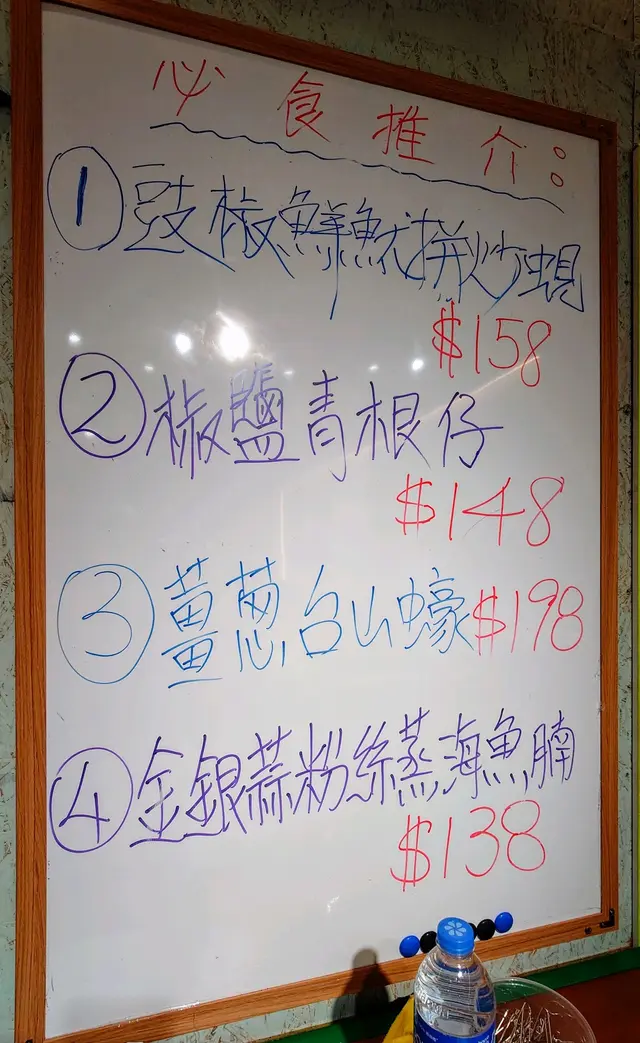 必食推介：
① 豉椒鮮魷拼炒蜆
$158
② 椒鹽青根仔
$148
③ 薑葱台山蠔 $198
④ 金銀蒜粉絲蒸海魚腩
$138